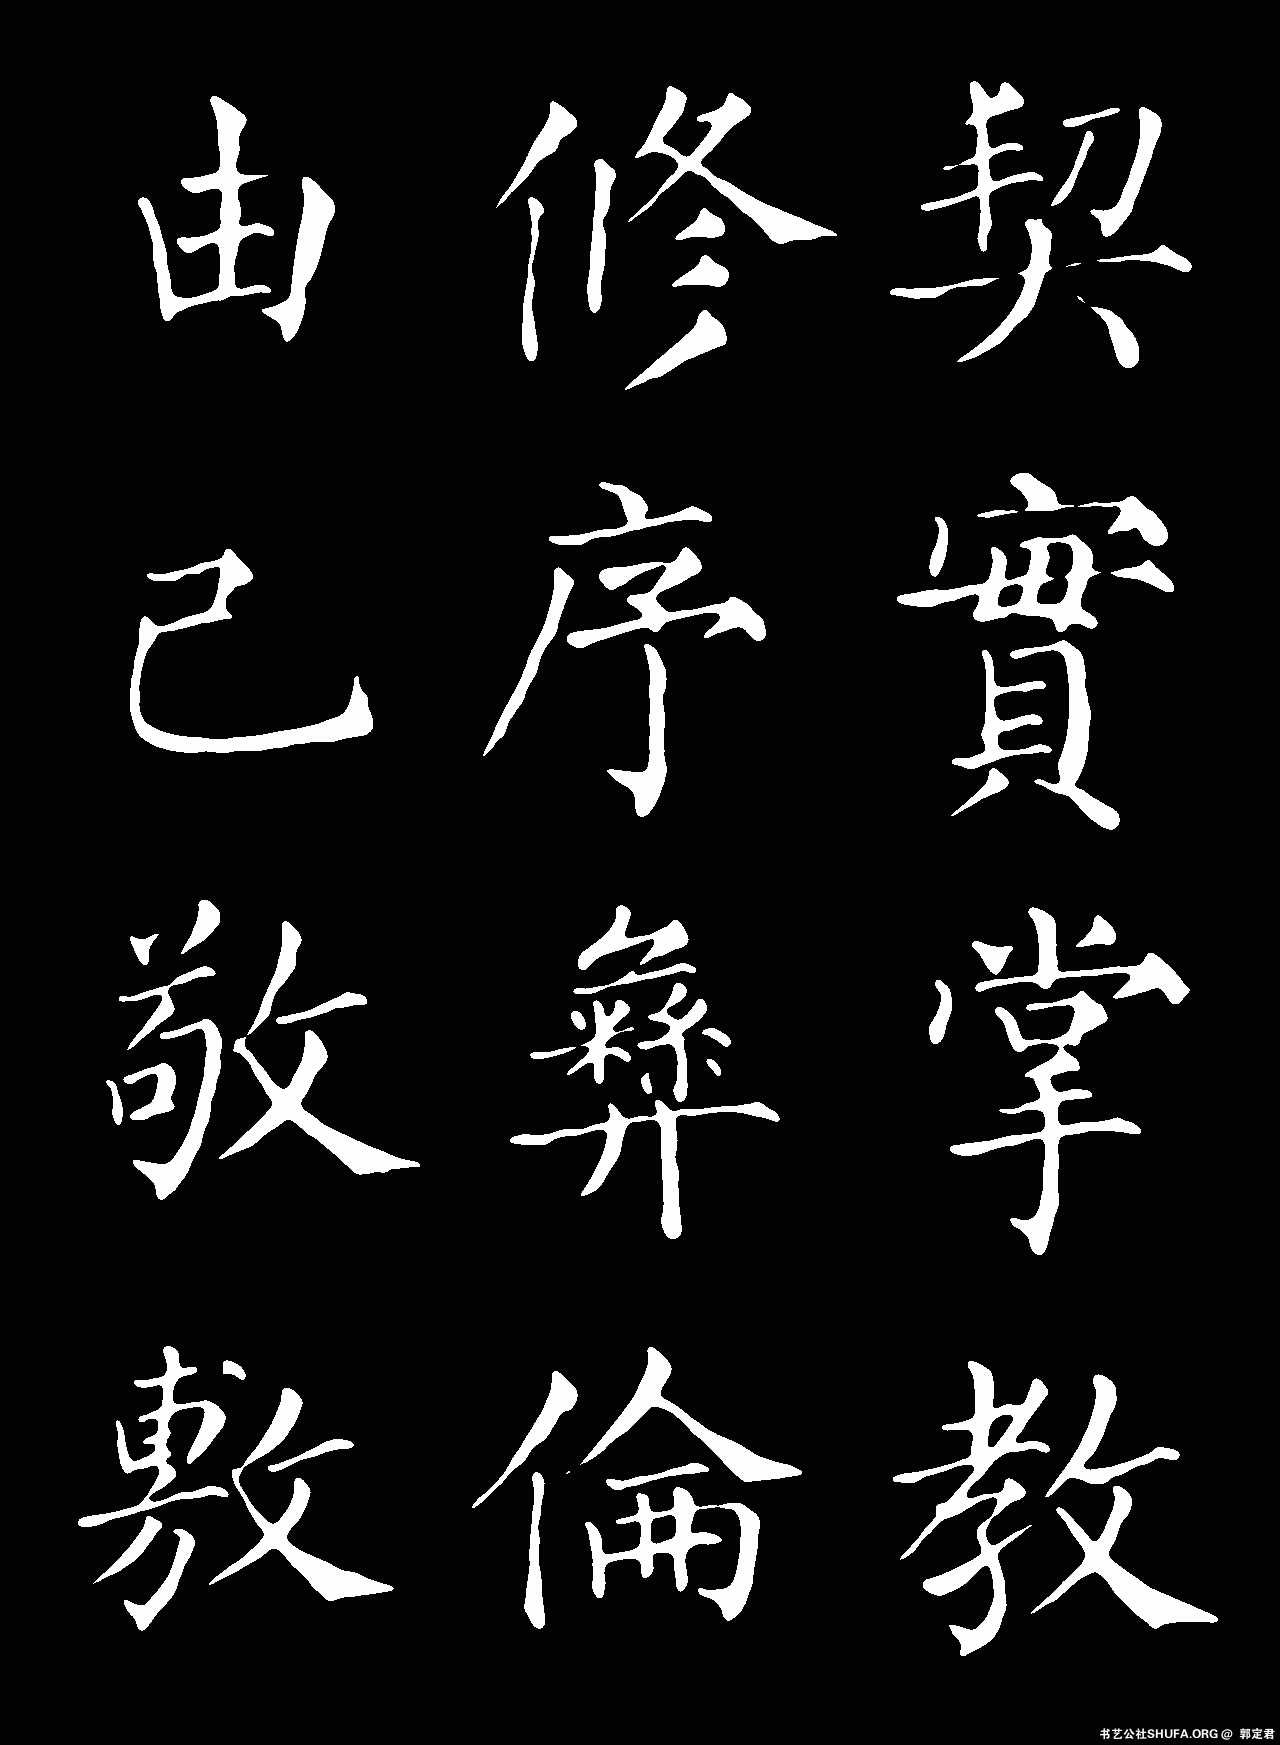 契實掌教
修序彝倫
由己敬敷
书艺公社SHUFA.ORG @ 郭定君